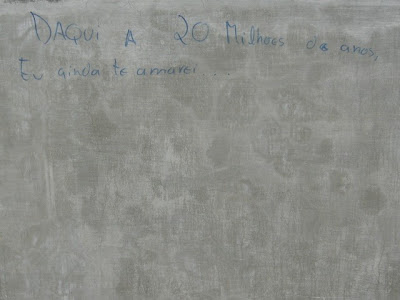 DAQUI A 20 Milhões de anos,
Eu ainda te amarei...